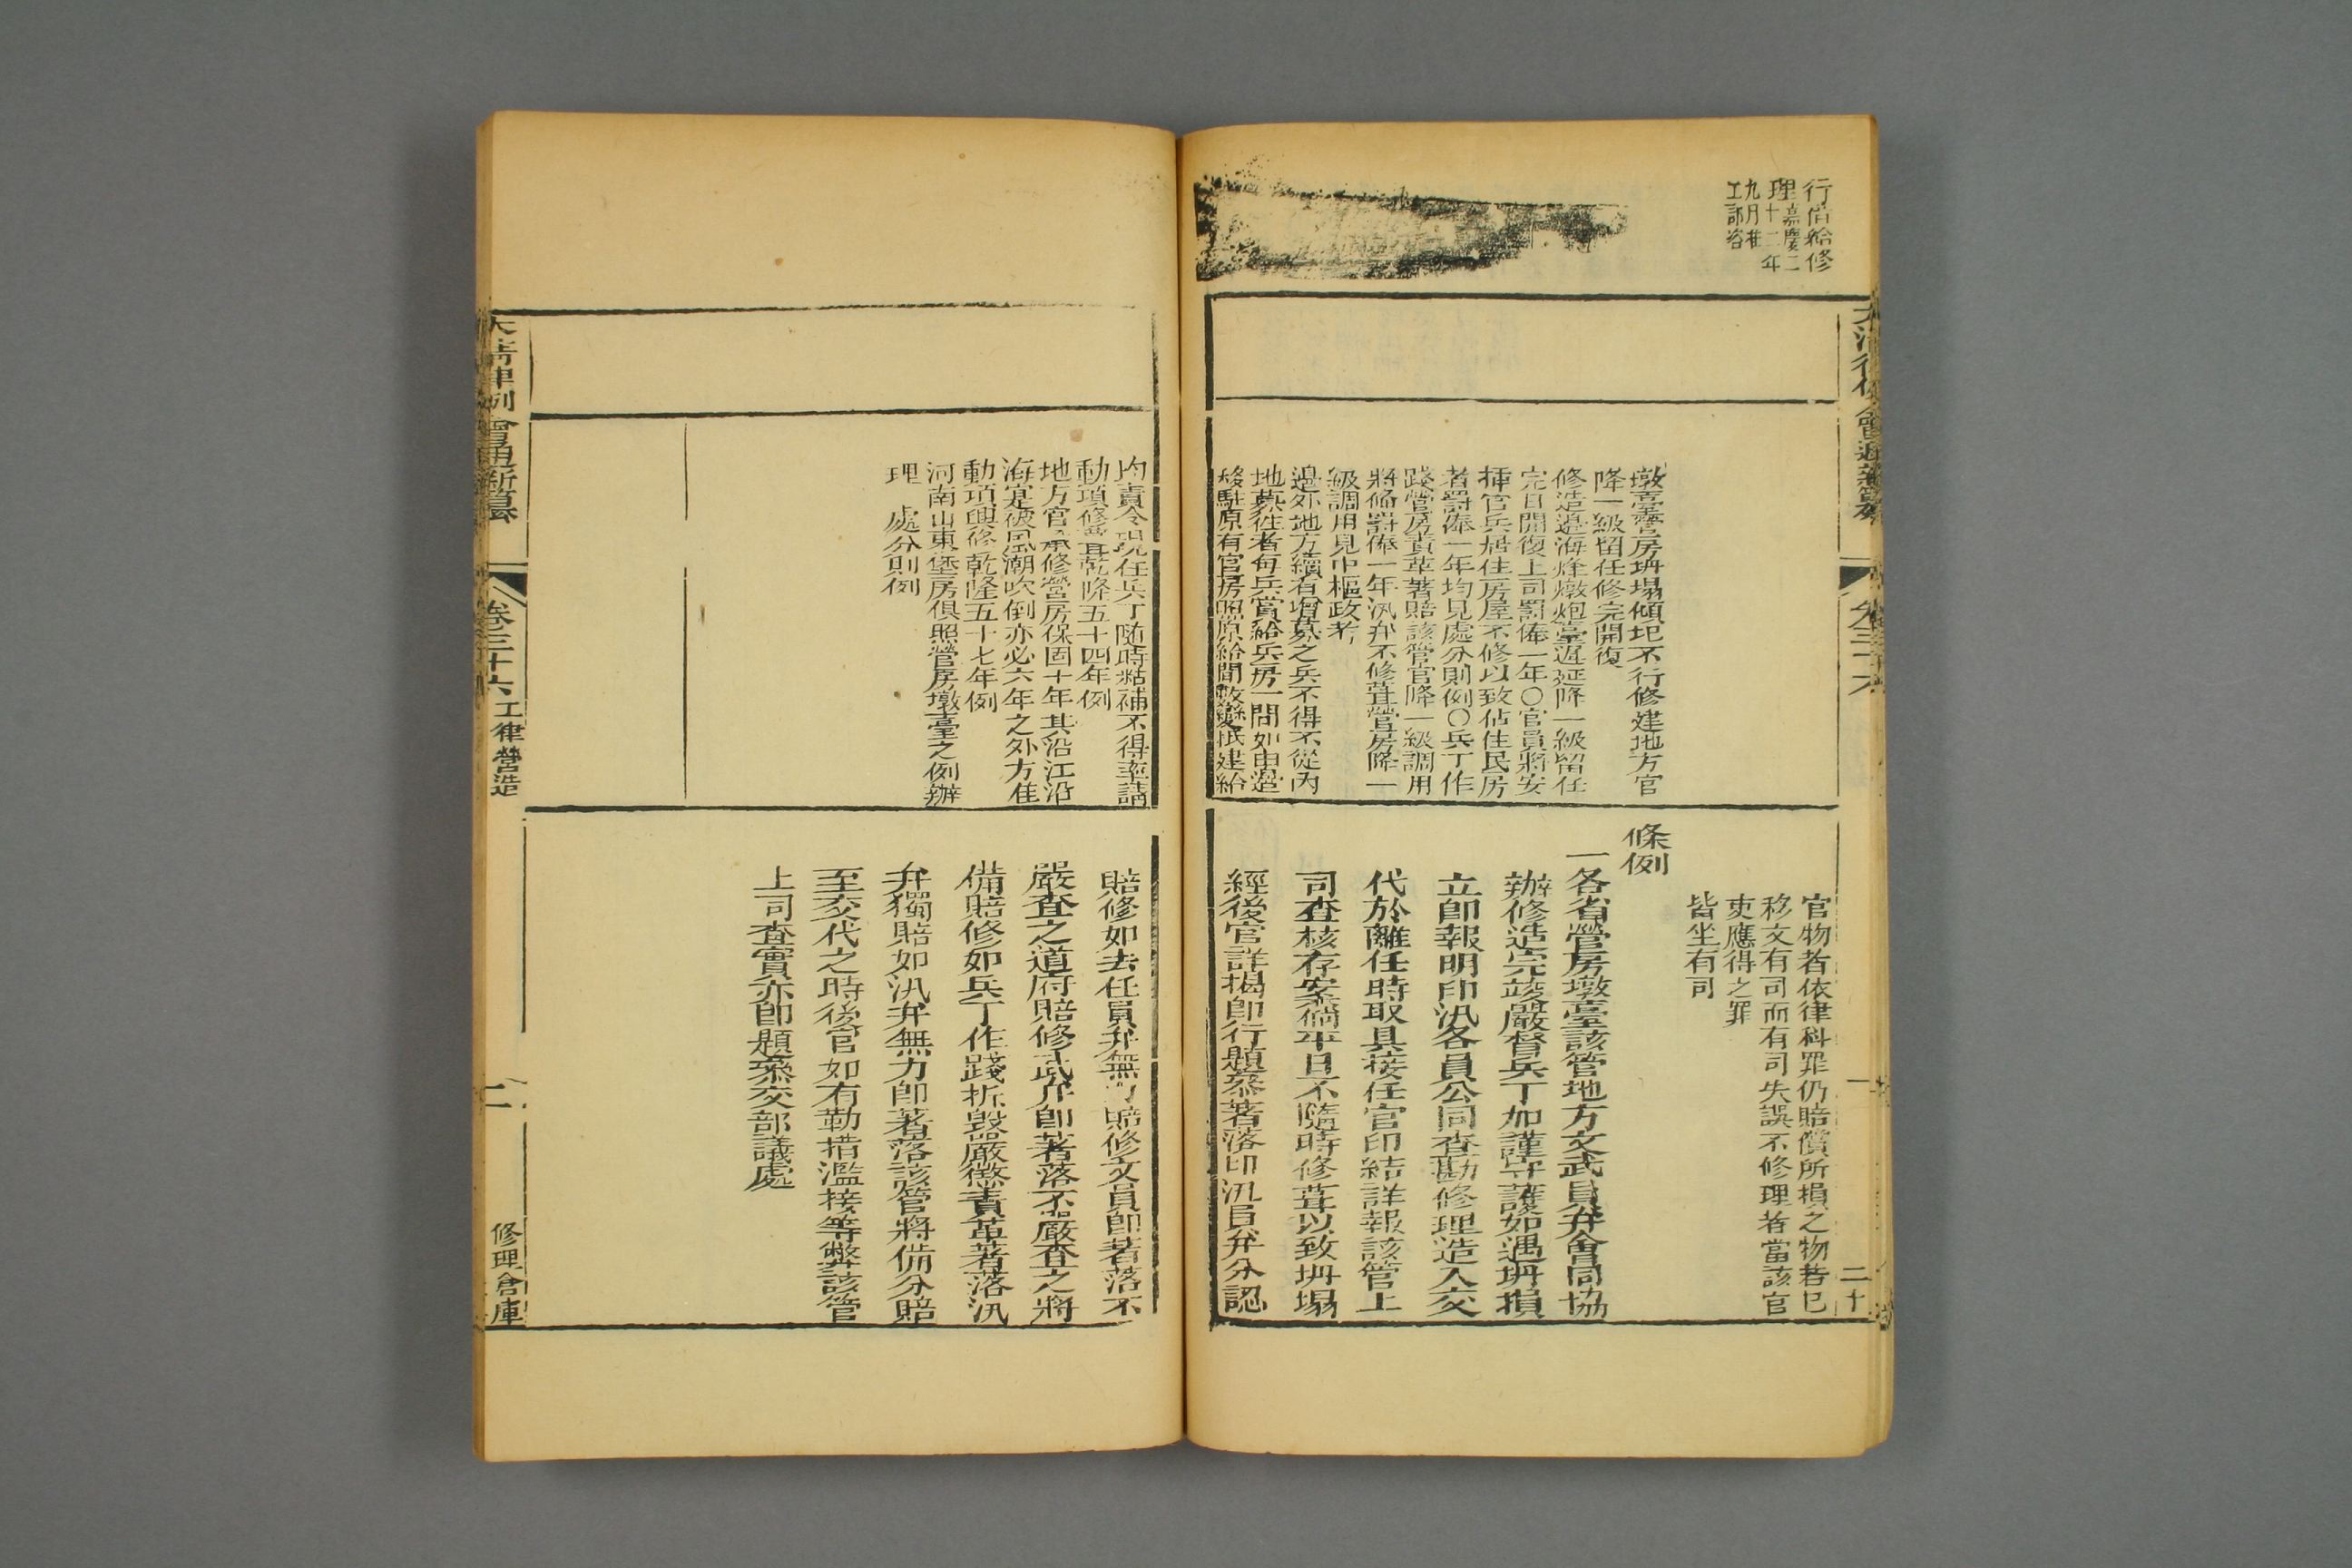 行估給修
理嘉慶二
十二年
九月准
工部咨
墩臺營房坍塌傾圮不行修建地方官
降一級留任修完開復
修造邊海烽墩炮臺遲延降一級留任
完日開復上司罰俸一年〇官員將安
揷官兵居住房屋不修以致佔住民房
者罰俸一年均見處分則例〇兵丁作
踐營房責革著賠該管官降一級調用
將俻罰俸一年汛弁不修葺營房降一
級調用見中樞政考
邊外地方續有增募之兵不得不從內
地募往者每兵賞給兵房一間如由邊
移駐原有官房照原給間數變抵建給
官物者依律科罪仍賠償所損之物若已
移文有司而有司失誤不修理者當該官
吏應得之罪
皆坐有司
條例
一各省營房墩臺該管地方文武員弁會同協
辦修造完竣嚴督兵丁加謹守護如遇坍損
立卽報明印汛各員公同查勘修理造入交
代於離任時取具接任官印結詳報該管上
司查核存案倘平日不隨時修葺以致坍塌
經後官詳揭卽行題叅著落印汛員弁分認
大清律例會通新纂
卷三十六
工律營造
二
修理倉庫
均責令現任兵丁随時粘補不得率請
動項修葺乾隆五十四年例
地方官承修營房保固十年其沿江沿
海定彼風潮吹倒亦必六年之外方准
動項興修乾隆五十七年例
河南山東堡房俱照營房墩臺之例辦
理　處分則例
賠修如去任員弁無力賠修文員卽著落不
嚴查之道府賠修武弁卽著落不嚴查之將
俻賠修如兵丁作踐折毀嚴懲責革著落汛
弁獨賠如汛弁無力卽著落該管將俻分賠
至交代之時後官如有勒掯濫接等弊該管
上司查實亦卽題叅交部議處